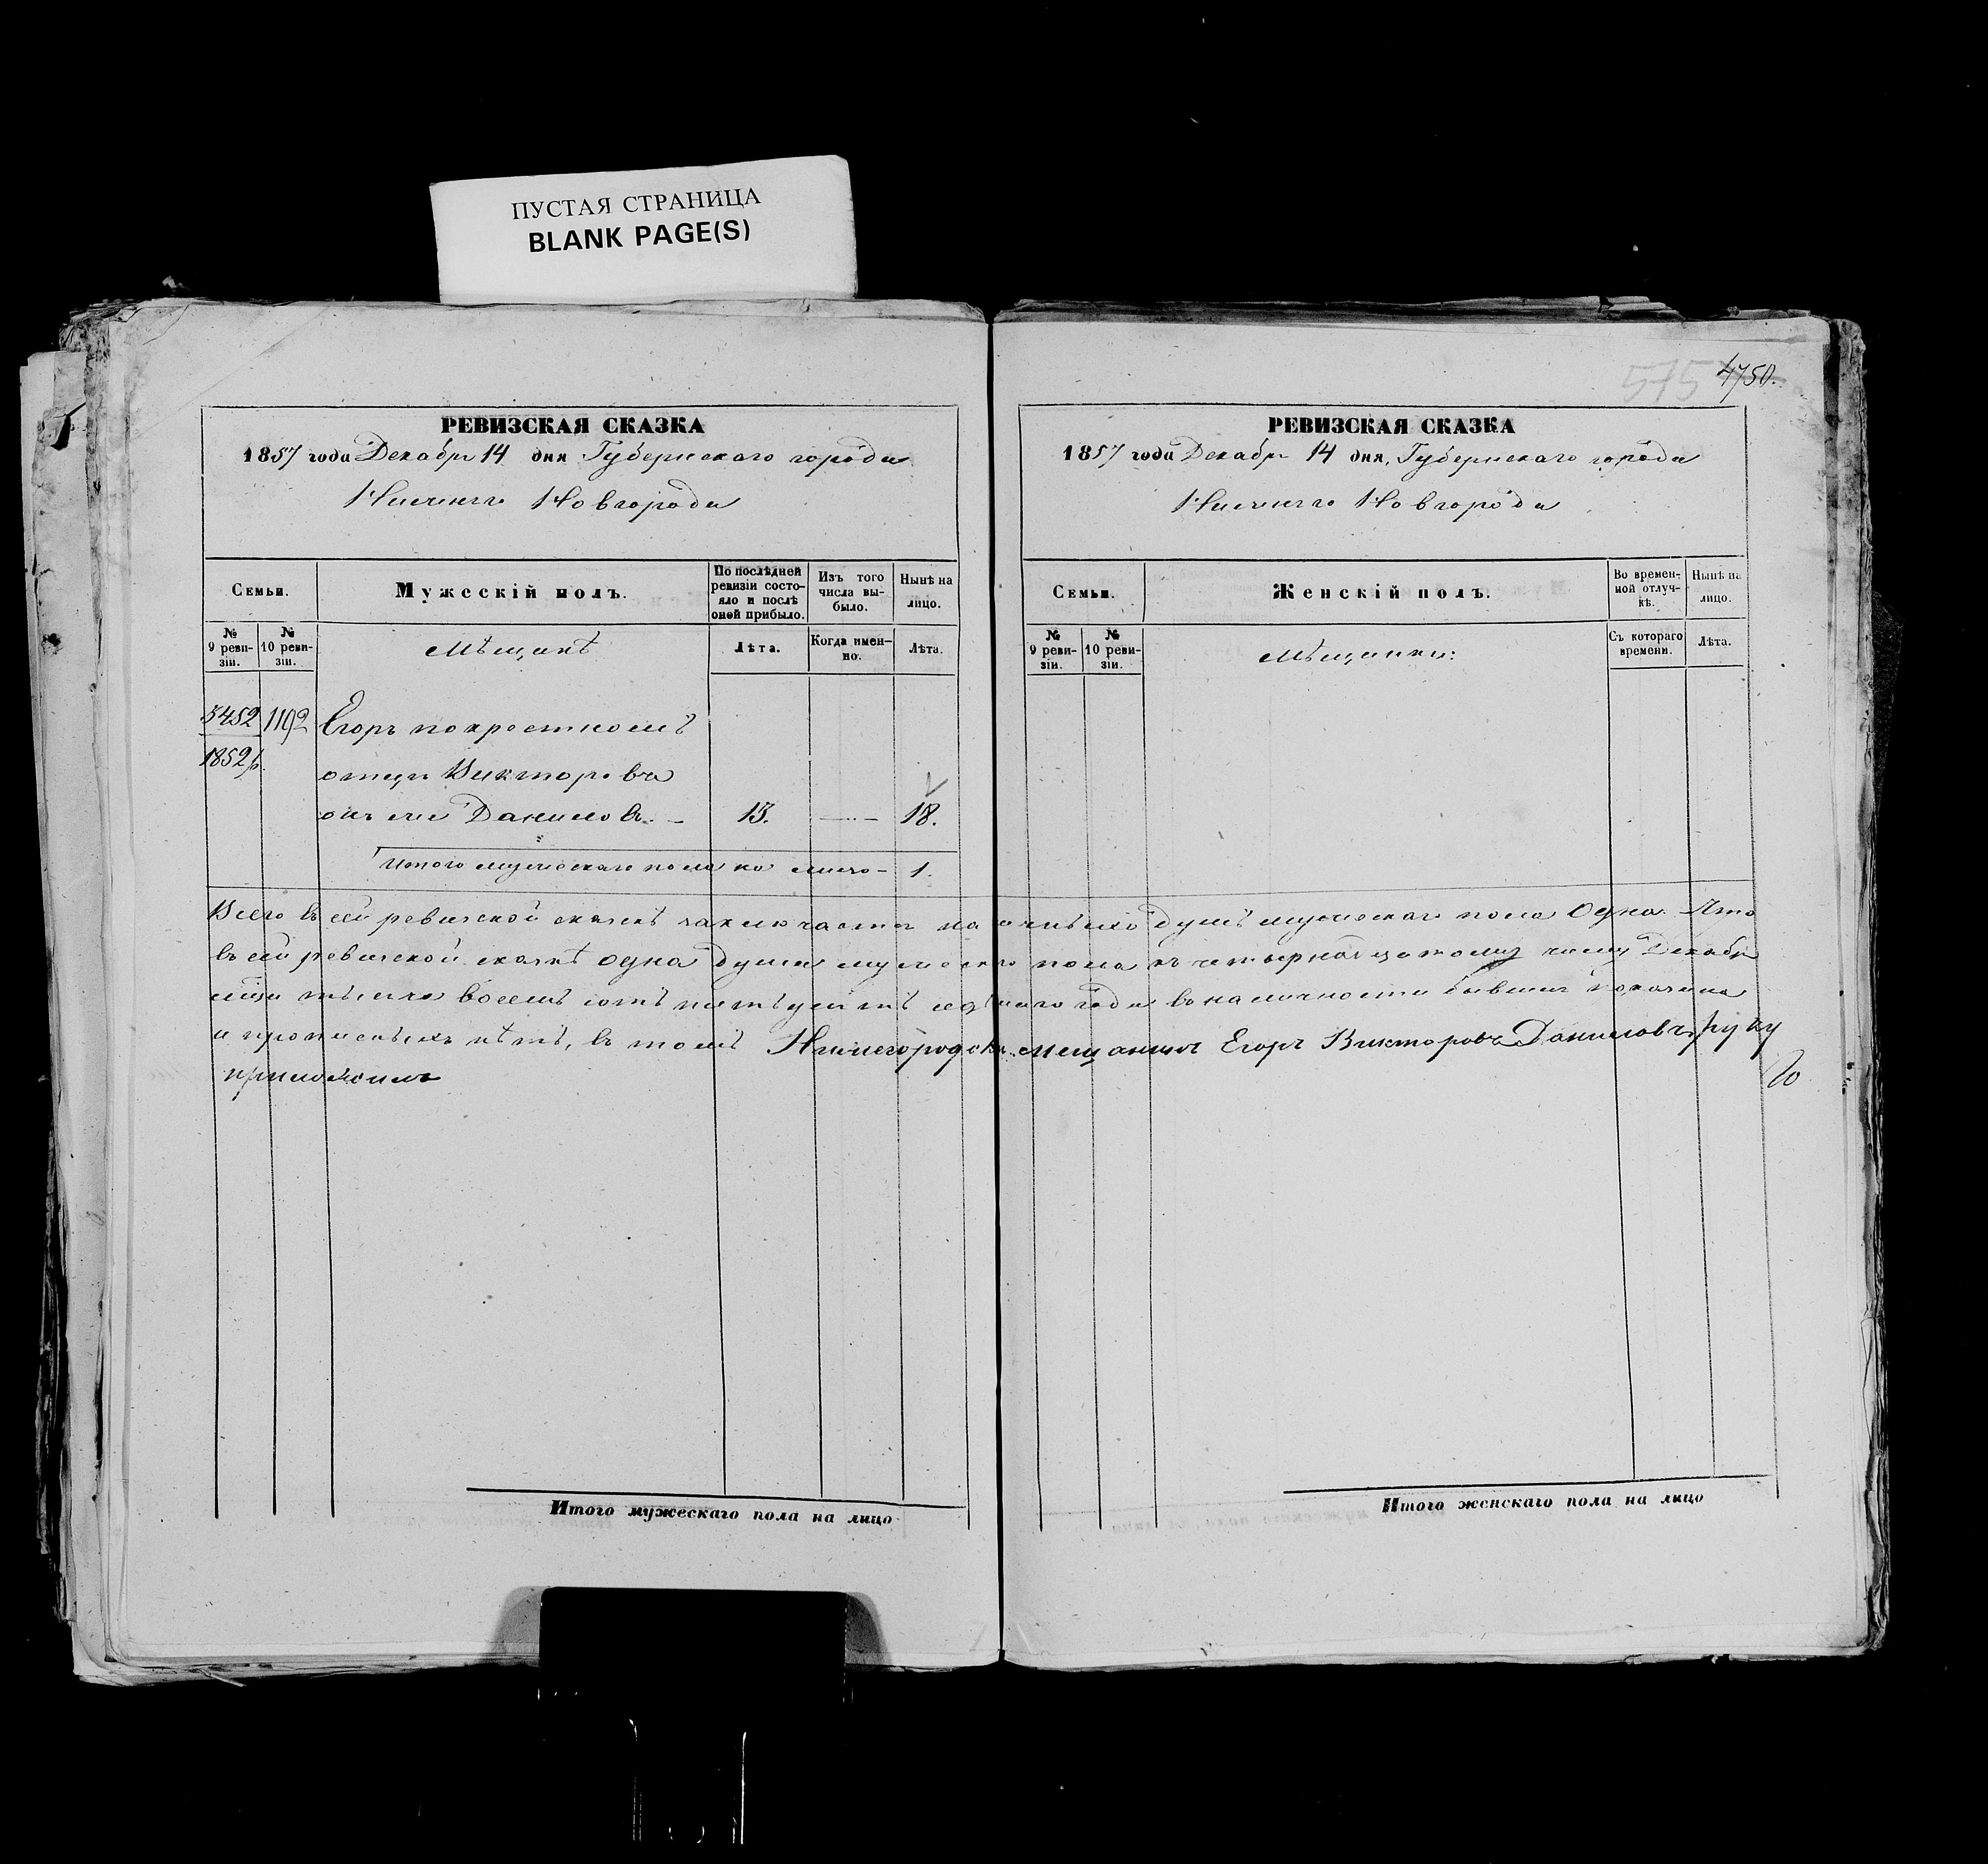 ПУСТАЯ СТРАНИЦА
BLANK PAGE(S)
РЕВИЗСКАЯ СКАЗКА
1857 года Декабря 14 дня Губернскаго города
Нижняго Новгорода
Семьи.
Мужескій полъ.
По послѣдней ревизіи состо-
яло и послѣ оной прибыло.
Изъ того числа вы-
было.
Нынѣ на лицо.
№ 9 реви-
зіи.
№ 10 реви-
зіи.
Мѣщанъ
Лѣта.
Когда имен-
но.
Лѣта.
3452 1192 Егоръ по крестномъ
1852 г. отцѣ Викторовъ
онъ же Даниловъ. – 13. — 18.
Итого мужескаго пола на лицо – 1.
575 4750.
РЕВИЗСКАЯ СКАЗКА
1857 года Декабря 14 дня, Губернскаго города
Нижняго Новгорода
Семьи.
Женскій полъ.
Во времен-
ной отлуч-
кѣ.
Нынѣ на лицо.
№ 9 реви-
зіи.
№ 10 реви-
зіи.
Мѣщанки:
Съ котораго времени.
Лѣта.
Всего въ сей ревизской сказкѣ заключается наличныхъ душъ мужескаго пола Одна. Что
въ сей ревизской сказкѣ одна душа мужескаго пола къ четырнадцатому числу Декабря
мѣсяца тысяча восемь сотъ пятьдесятъ седьмаго года въ наличности бывшая показана
и прописныхъ нѣтъ, въ томъ Нижегородскій мещанинъ Егоръ Викторовъ Даниловъ руку
приложилъ
Итого мужескаго пола на лицо
Итого женскаго пола на лицо